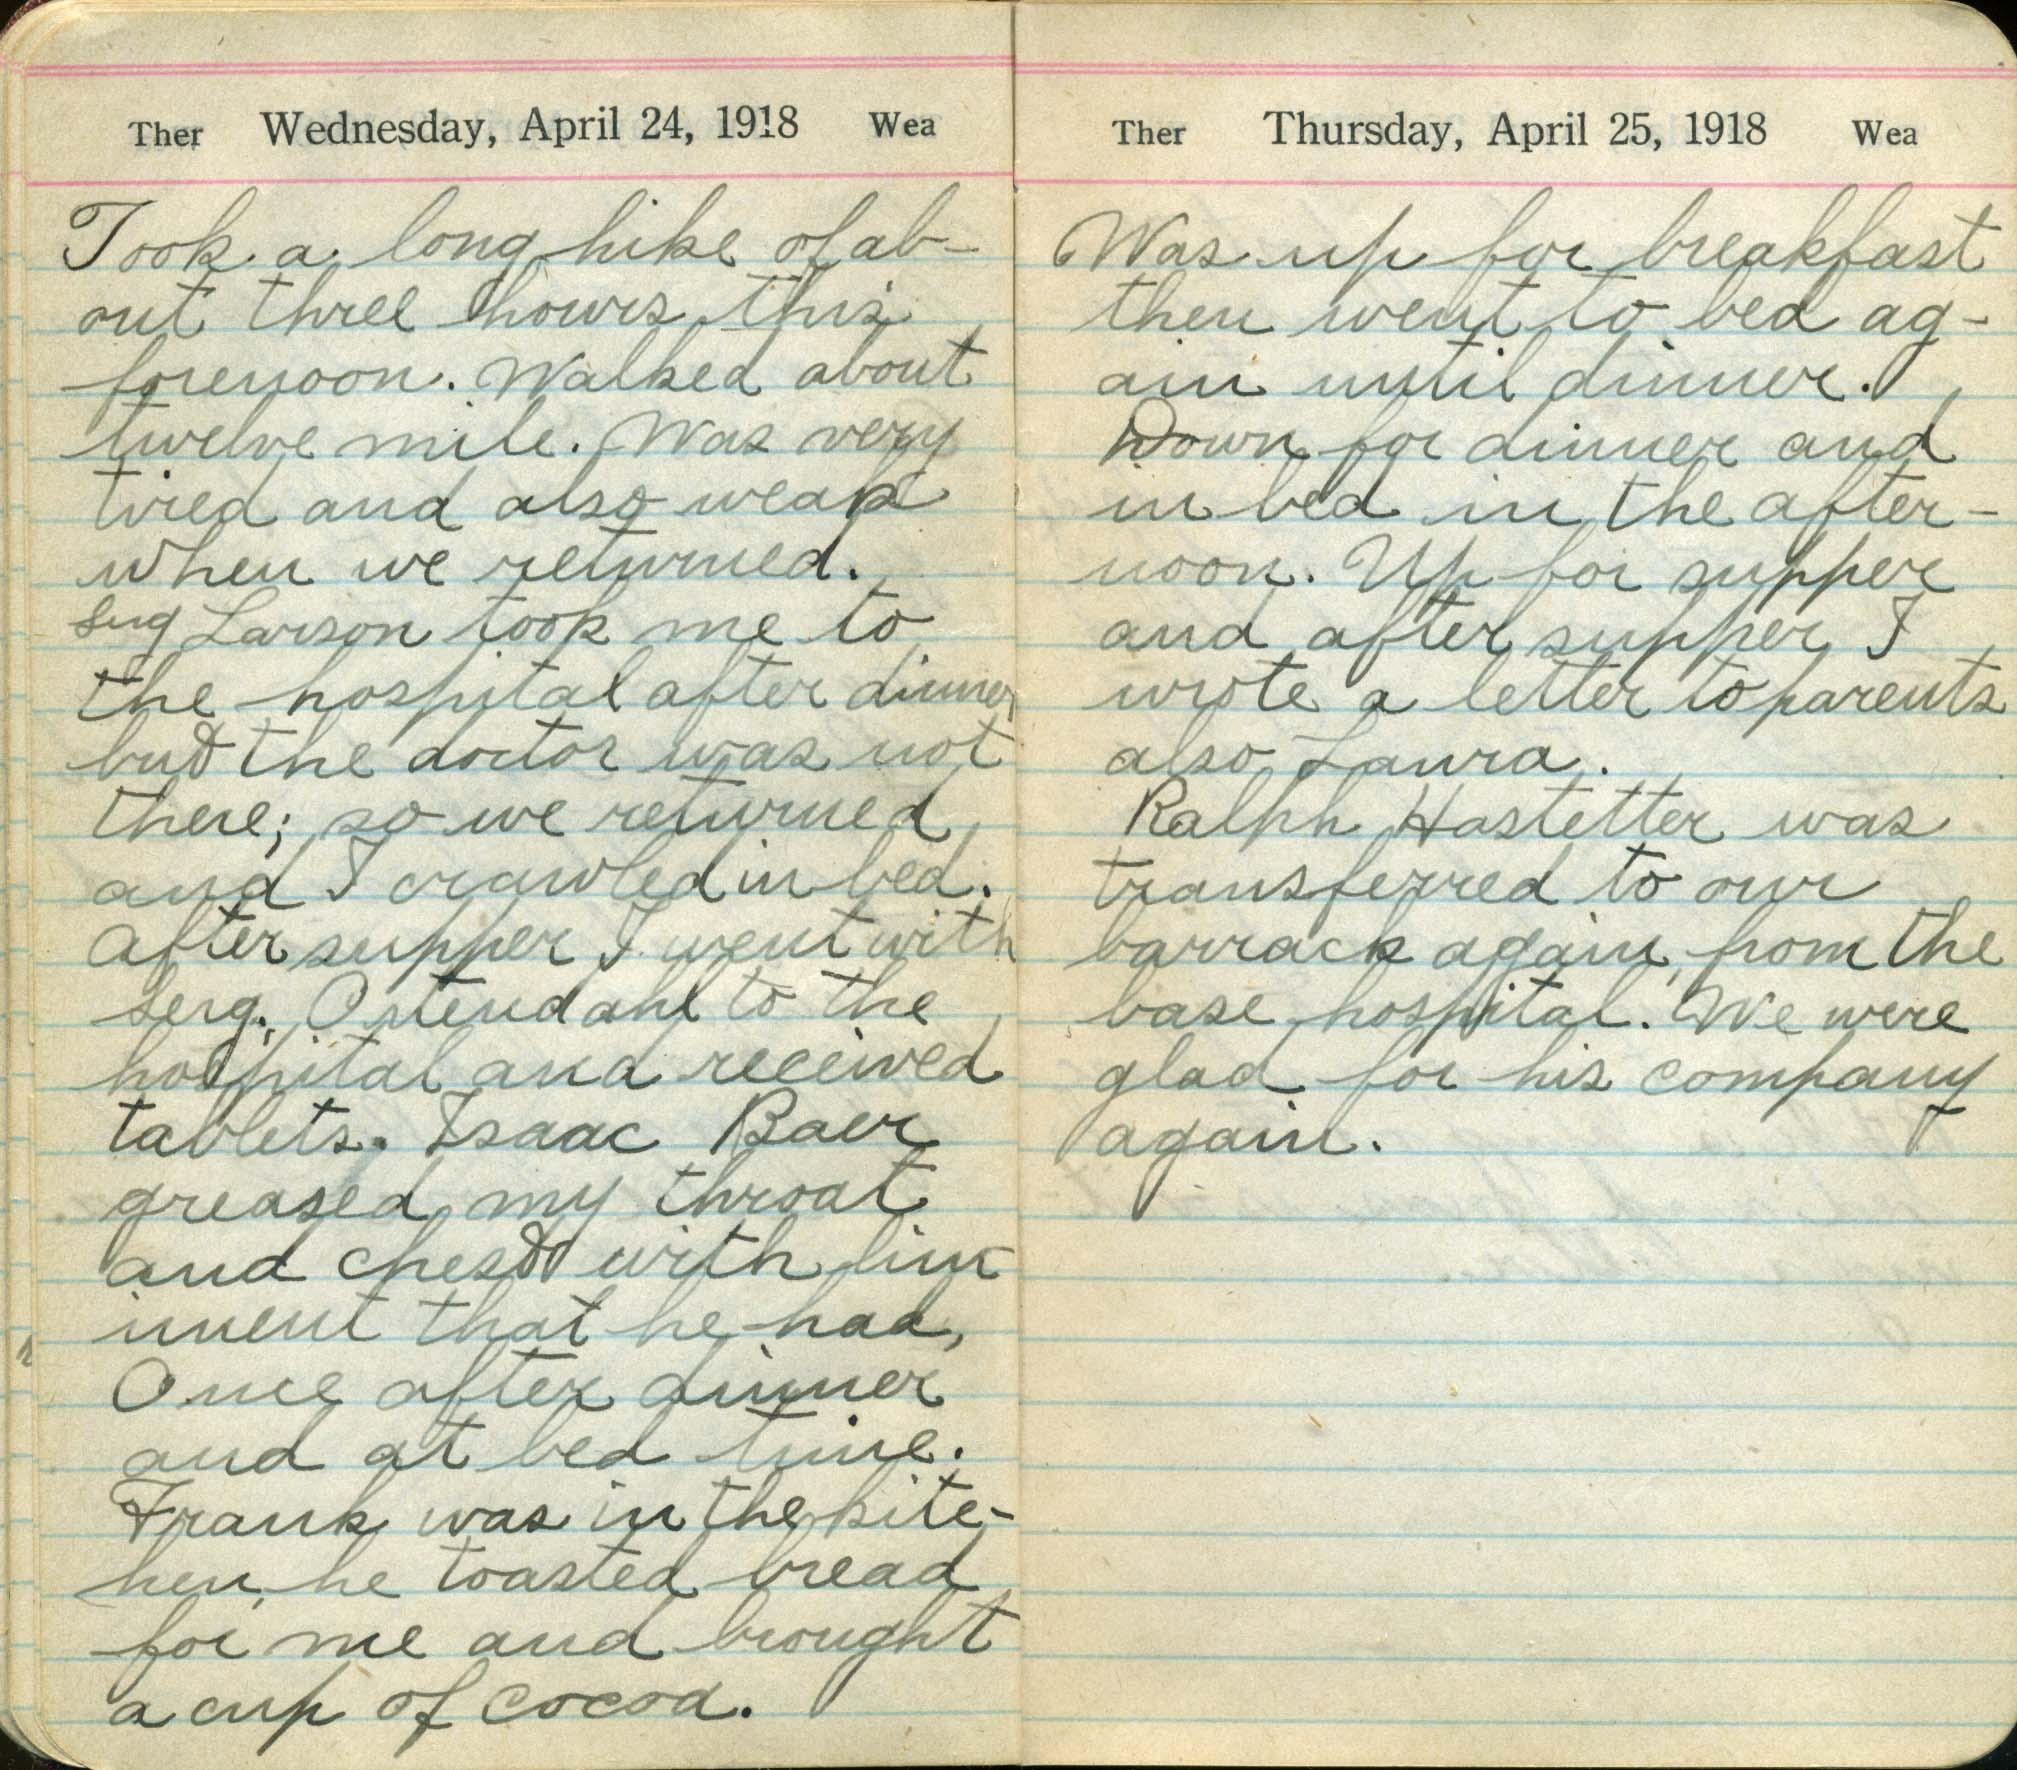 Ther Wednesday, April 24, 1918 Wea
Took a long hike of ab-
out three hours this
forenoon. Walked about
twelve mile. Was very
tired and also weak
when we returned.
Serg Larson took me to
the hospital after dinner
but the doctor was not
there; so we returned
and I crawled in bed.
After supper I went with
Serg. Ostendahl to the
hospital and received
tablets. Isaac Baer
greased my throat
and chest with lin
iment that he had,
Once after dinner
and at bed time.
Frank was in the kitc-
hen, he toasted bread
for me and brought
a cup of cocoa.
Ther Thursday, April 25, 1918 Wea
Was up for breakfast
then went to bed ag-
ain until dinner.
Down for dinner and
in bed in the after-
noon. Up for supper
and after supper I
wrote a letter to parents
also Laura.
Ralph Hostetter was
transferred to our
barrack again, from the
base hospital. We were
glad for his company
again.